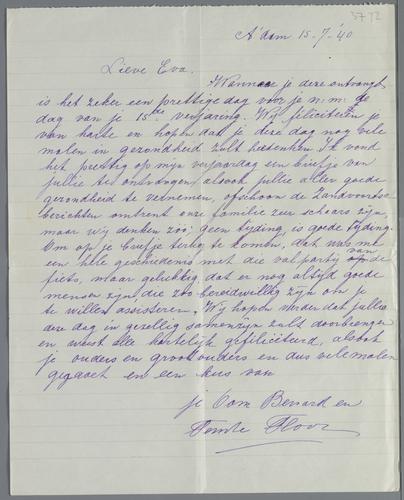 3772
A'dam 15-7-'40
Lieve Eva.
Wanneer je deze ontvangt
is het zeker een prettige dag voor je n.m. de
dag van je 15de verjaring. Wij feliciteren je
van harte en hopen dat je deze dag nog vele
malen in gezondheid zult herdenken. Ik vond
het prettig op mijn verjaardag een briefje van
jullie te ontvangen, alsook jullie aller goede
gezondheid te vernemen, ofschoon de Zandvoortse
berichten omtrent onze familie zeer schaars zijn,
maar wij denken zoo: geen tijding, is goede tijding.
Om op je briefje terug te komen, dat was me
een hele geschiedenis met die valpartij van de
fiets, maar gelukkig dat er nog altijd goede
mensen zijn, die zoo bereidwillig zijn om je
te willen assisteren. Wij hopen verder dat jullie
deze dag in gezellig samenzijn zult doorbrengen
en weest alle hartelijk gefiliciteerd, alsook
je ouders en grootouders en dus vele malen
gegroet en een kus van
je Oom Barend en
Tante Floor